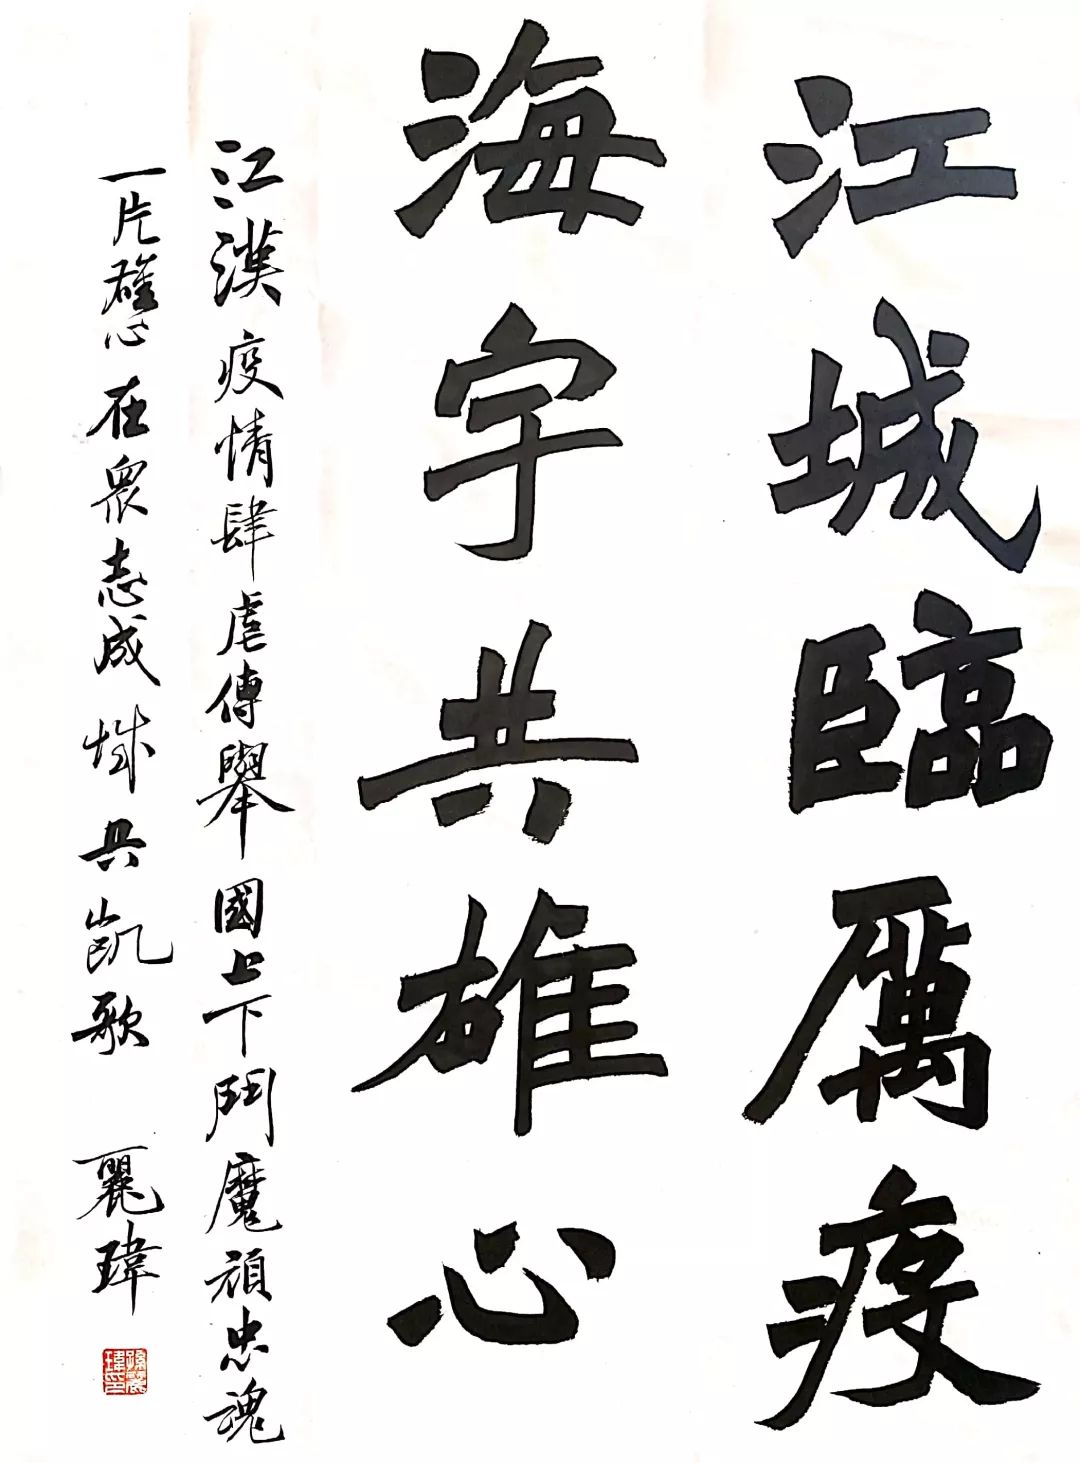 江城臨厲疫
海宇共雄心
江漢疫情肆虐傳舉國上下鬥魔頑忠魂
一片應在眾志成城共凱歌 麗瑋